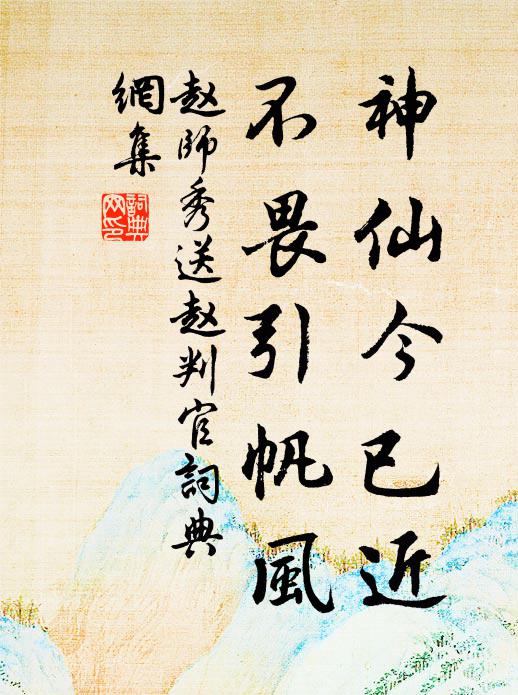 神仙今已近
不畏引帆風
赵師秀送赵判官詞典
網集
詞典
网印